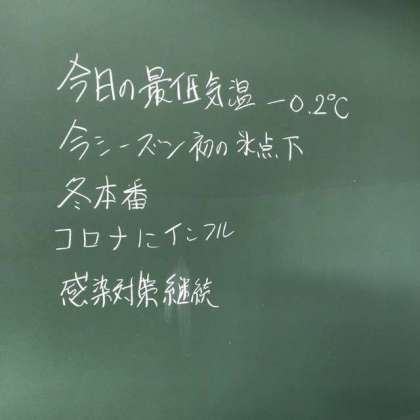 今日の最低気温 -0.2℃
今シーズン初の氷点下
冬本番
コロナにインフル
感染対策継続